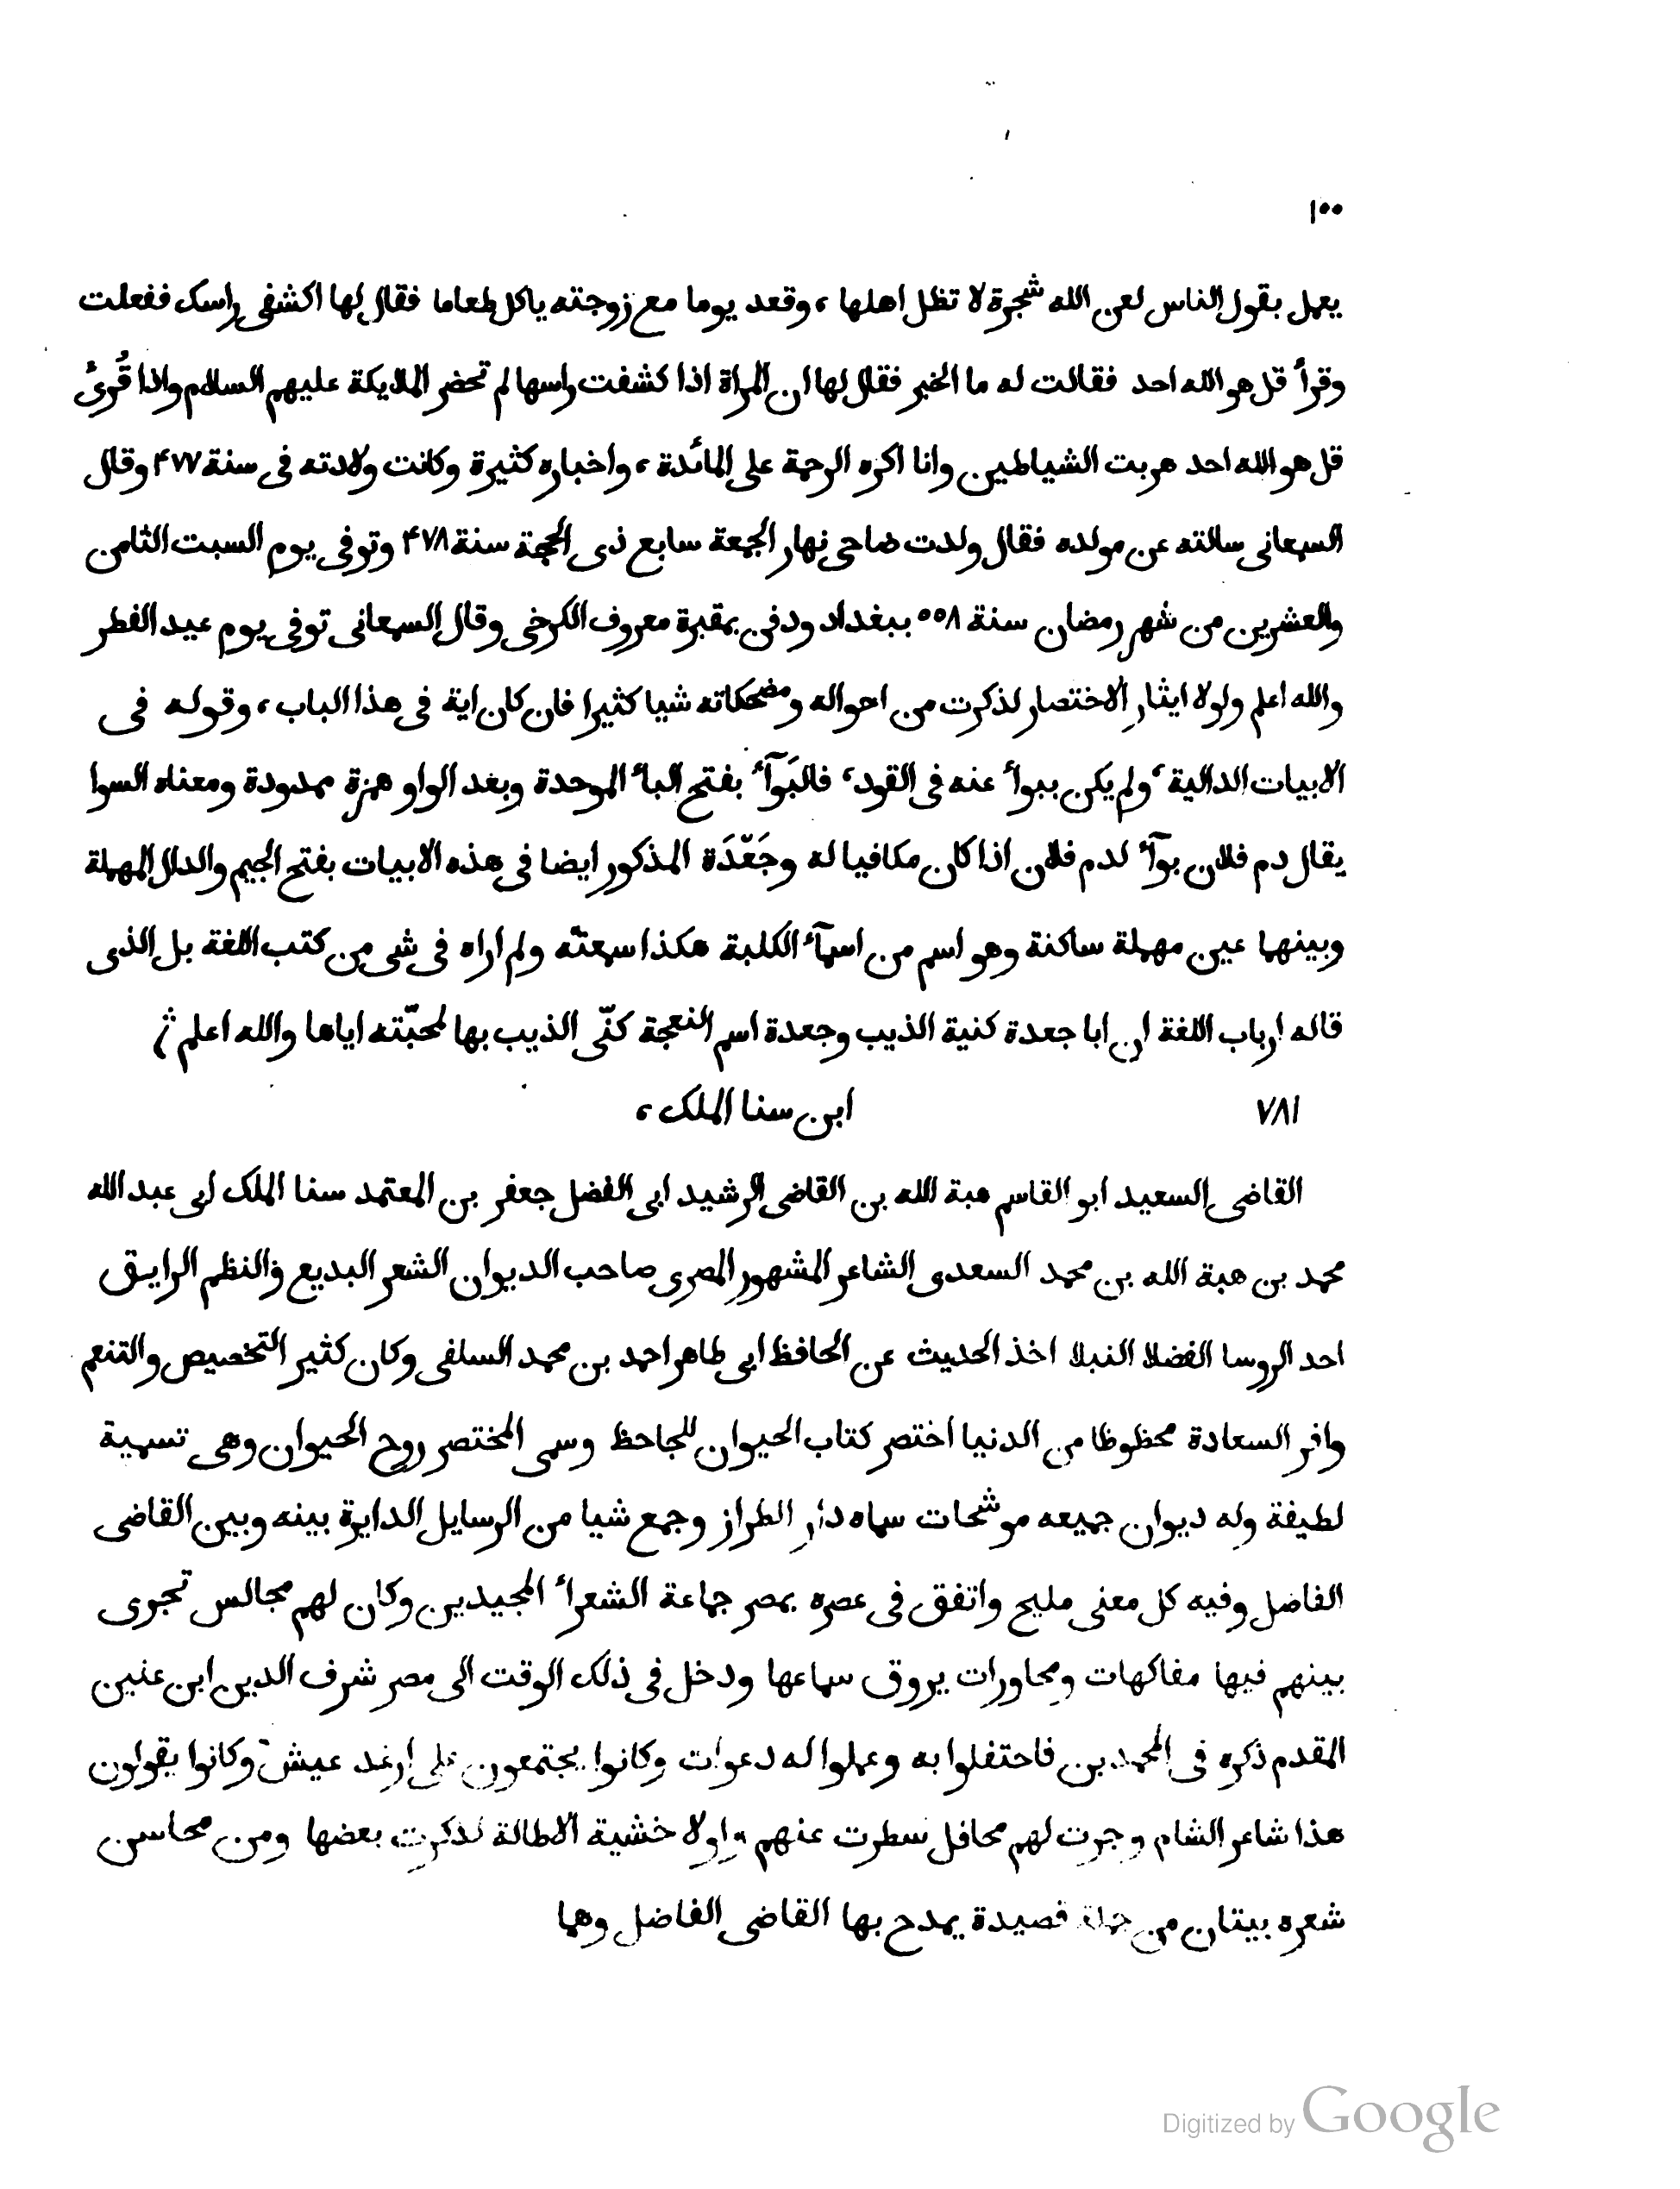 ١٠٠
يعمل بقول الناس لعن الله شجرة لا تظل اهلها ، وقعد يوما مع زوجته ياكل طعاما فقال لها اكشفى راسك ففعلت
وقرأ قل هو الله احد فقالت له ما الخبر فقال لها ان المراة اذا كشفت راسها لم تحضر الملايكة عليهم السلام واذا قُرىٔ
قل هو الله احد هربت الشياطين وانا اكره الرحمة على المائدة ، واخباره كثيرة وكانت ولادته فى سنة ۴۷۷ وقال
السمعانى سالته عن مولده فقال ولدت ضاحى نهار الجمعة سابع ذى الحجة سنة ۴۷۸ وتوفى يوم السبت الثامن
والعشرين من شهر رمضان سنة ٥٥٨ ببغداد ودفن بمقبرة معروف الكرخى وقال السمعانى توفى يوم عيد الفطر
والله اعلم ولولا ايثار الاختصار لذكرت من احواله ومضحكاته شيا كثيرا فان كان اية فى هذا الباب ، وقوله فى
الابيات الدالية ، ولم يكن ببوأ عنه فى القود ، فالبَوآء بفتح الباء الموحدة وبغد الواو همزة ممدودة ومعناه السوا
يقال دم فلان بوآء لدم فلان اذا كان مكافيا له وجَعْدَة المذكور ايضا فى هذه الابيات بفتح الجيم والدال المهملة
وبينهما عين مهملة ساكنة وهو اسم من اسمآء الكلبة هكذا سمعتّه ولم اراه فى شى من كتب اللغة بل الذى
قاله ارباب اللغة ان ابا جعدة كنية الذيب وجعدة اسم النعجة كنّى الذيب بها لمحبّته اياها والله اعلم
٧٨١ ابن سنا الملك ،
القاضى السعيد ابو القاسم هبة الله بن القاضى الرشيد ابى الفضل جعفر بن المعتمد سنا الملك ابى عبد الله
محمد بن هبة الله بن محمد السعدى الشاعر المشهور المصرى صاحب الديوان الشعر البديع والنظم الرايق
احد الروسا الفضلا النبلا اخذ الحديث عن الحافظ ابى طاهر احمد بن محمد السلفى وكان كثير التخصيص والتنعم
وافر السعادة محظوظا من الدنيا اختصر كتاب الحيوان للجاحظ وسمى المختصر روح الحيوان وهى تسمية
لطيفة وله ديوان جميعه موشحات سماه دار الطراز وجمع شيا من الرسايل الدايرة بينه وبين القاضى
الفاضل وفيه كل معنى مليح واتفق فى عصره بمصر جماعة الشعراء المجيدين وكان لهم مجالس تجرى
بينهم فيها مفاكهات ومحاورات يروق سماعها ودخل فى ذلك الوقت الى مصر شرف الدين ابن عنين
المقدم ذكره فى المحمدين فاحتفلوا به وعملوا له دعوات وكانوا يجتمعون على ارغد عيش وكانوا يقولون
هذا شاعر الشام وجرت لهم محافل سطرت عنهم ولولا خشية الاطالة لذكرت بعضها ومن محاسن
شعره بيتان من جملة قصيدة يمدح بها القاضى الفاضل وهما
Digitized by Google